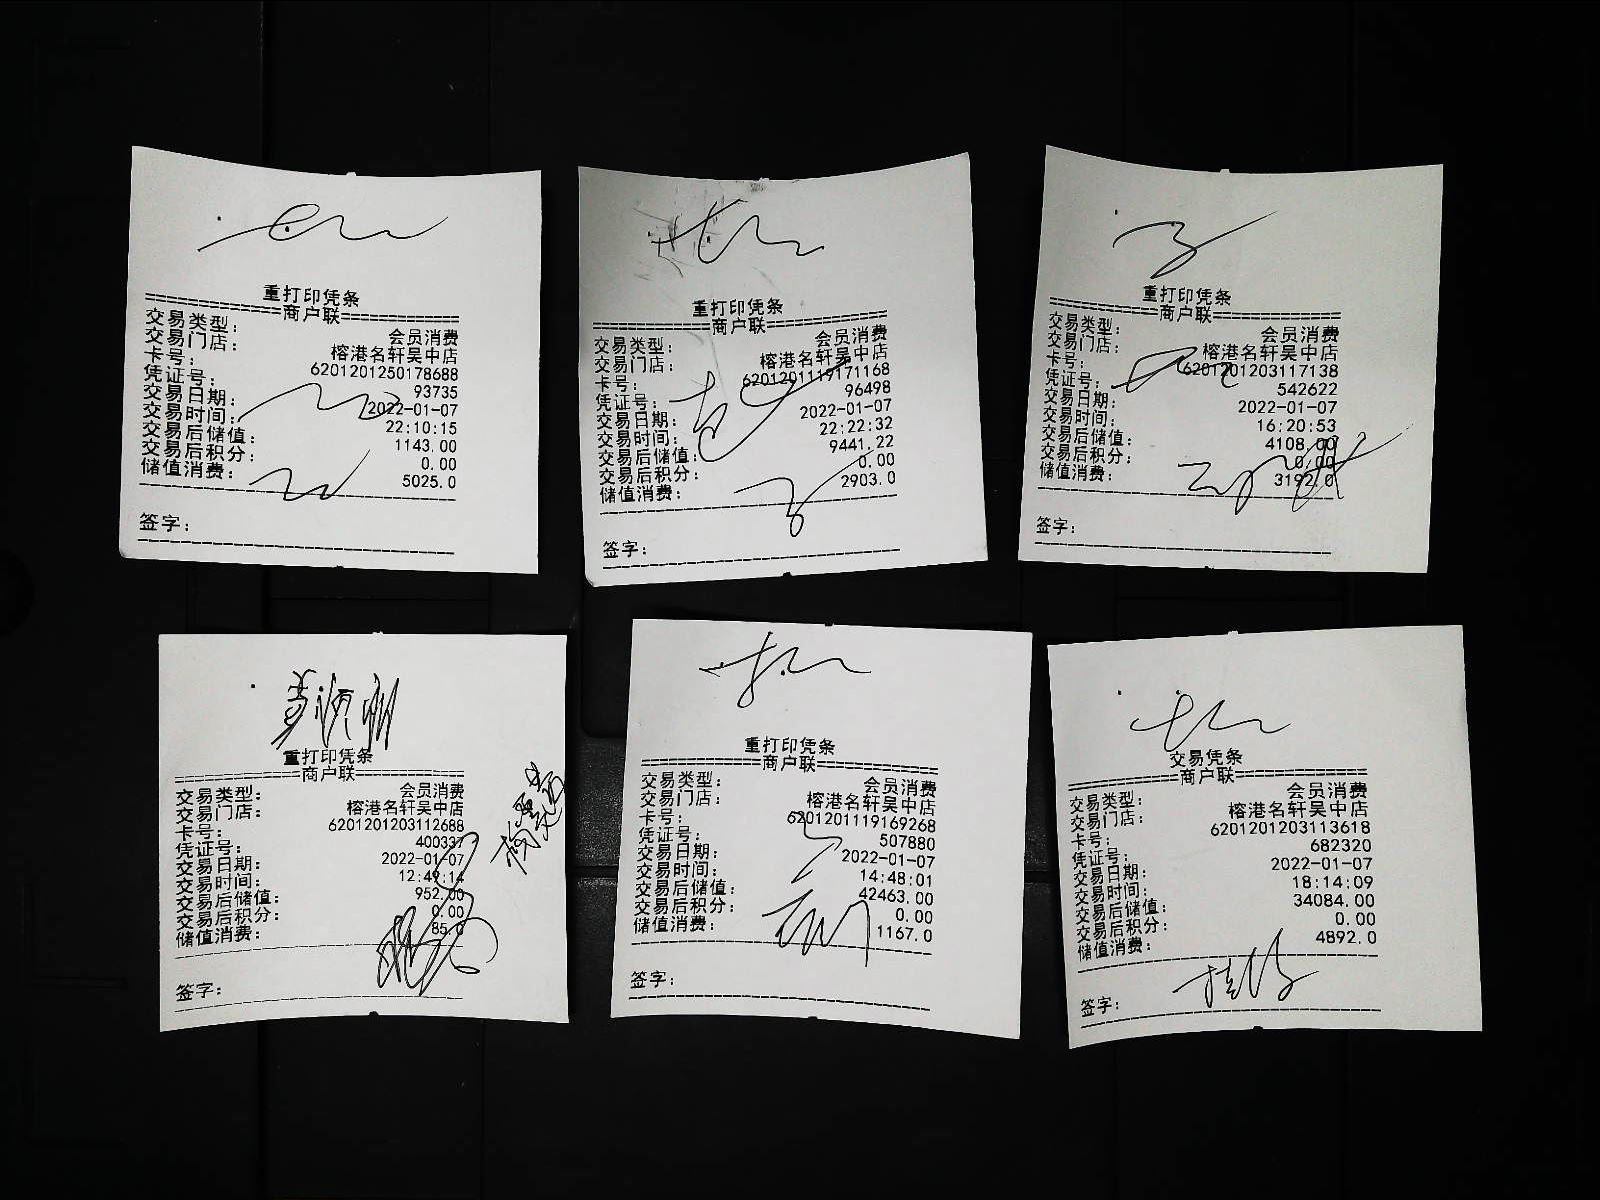 重打印凭条
==========商户联==========
交易类型: 会员消费
交易门店: 榕港名轩吴中店
卡号: 6201201250178688
凭证号: 93735
交易日期: 2022-01-07
交易时间: 22:10:15
交易后储值: 1143.00
交易后积分: 0.00
储值消费: 5025.0
签字:
重打印凭条
==========商户联==========
交易类型: 会员消费
交易门店: 榕港名轩吴中店
卡号: 6201201119171168
凭证号: 96498
交易日期: 2022-01-07
交易时间: 22:22:32
交易后储值: 9441.22
交易后积分: 0.00
储值消费: 2903.0
签字:
重打印凭条
==========商户联==========
交易类型: 会员消费
交易门店: 榕港名轩吴中店
卡号: 6201201203117138
凭证号: 542622
交易日期: 2022-01-07
交易时间: 16:20:53
交易后储值: 4108.00
交易后积分: 0.00
储值消费: 3192.0
签字:
重打印凭条
==========商户联==========
交易类型: 会员消费
交易门店: 榕港名轩吴中店
卡号: 6201201203112688
凭证号: 400337
交易日期: 2022-01-07
交易时间: 12:49:14
交易后储值: 952.00
交易后积分: 0.00
储值消费: 85.0
签字:
重打印凭条
==========商户联==========
交易类型: 会员消费
交易门店: 榕港名轩吴中店
卡号: 6201201119169268
凭证号: 507880
交易日期: 2022-01-07
交易时间: 14:48:01
交易后储值: 42463.00
交易后积分: 0.00
储值消费: 1167.0
签字:
交易凭条
==========商户联==========
交易类型: 会员消费
交易门店: 榕港名轩吴中店
卡号: 6201201203113618
凭证号: 682320
交易日期: 2022-01-07
交易时间: 18:14:09
交易后储值: 34084.00
交易后积分: 0.00
储值消费: 4892.0
签字: